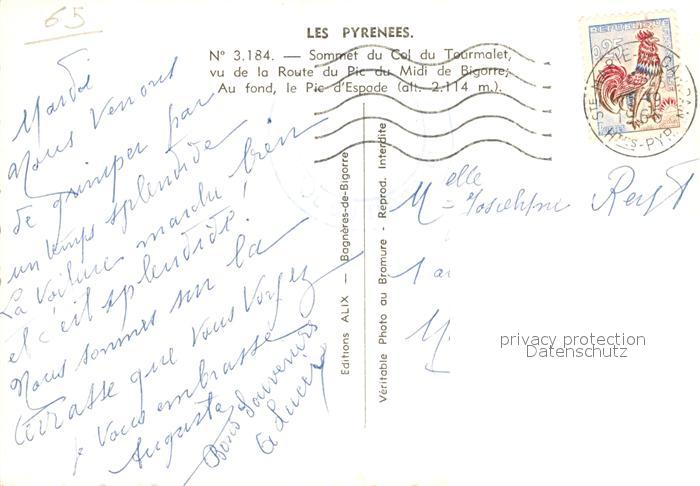 65
LES PYRENEES.
N° 3.184. — Sommet du Col du Tourmalet,
vu de la Route du Pic du Midi de Bigorre;
Au fond, le Pic d'Espade (alt. 2.114 m.).
Mardi
Nous Venons
de grimper par
un temps splendide
La Voiture marche bien
et c'est splendide !
Nous sommes sur la
terrasse que vous voyez
je vous embrasse
Auguste
Bons Souvenirs
Lucie
Editions ALIX — Bagnères-de-Bigorre
Véritable Photo au Bromure - Reprod. Interdite
0,25
STE MARIE-DE-CAMPAN
HTES-PYR.
Melle
privacy protection
Datenschutz